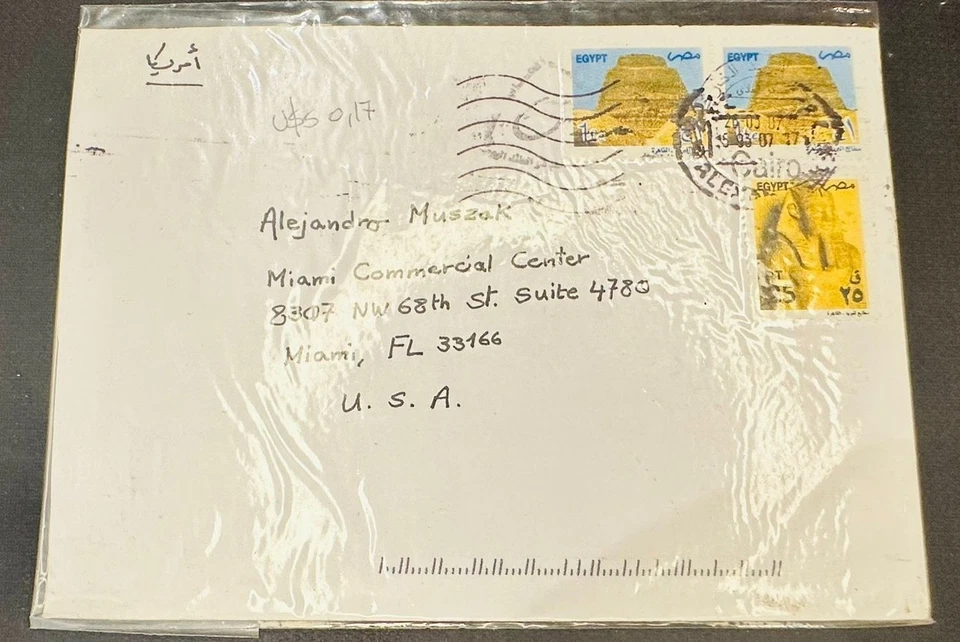 أمريكا
U$S 0,17
EGYPT مصر
EGYPT مصر
Cairo
Alejandro Muszak
EGYPT مصر
Miami Commercial Center
8307 NW 68th St. Suite 4780
٢٥ ق
Miami, FL 33166
U. S. A.